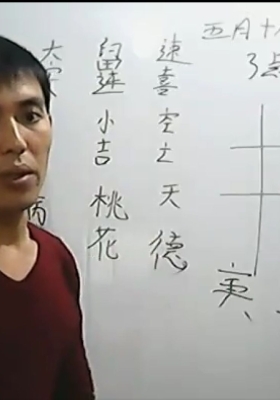 大安
病
留連
小吉
桃花
速喜
空亡
天德
五月十
3点
寅